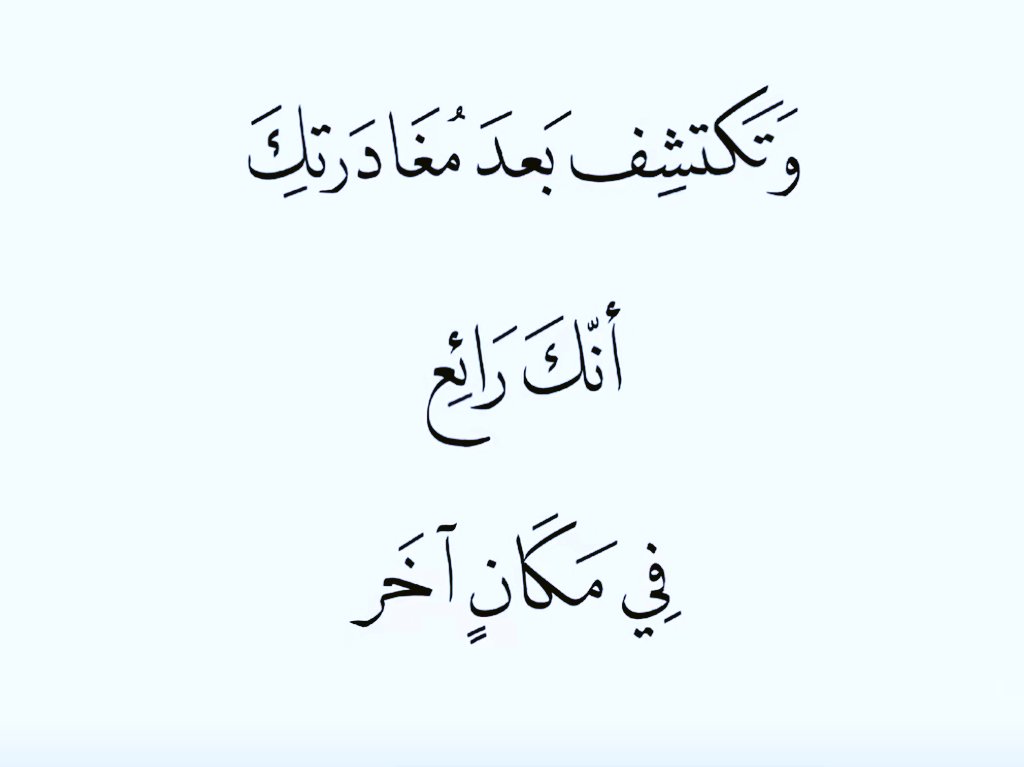 وَتَكتشِف بَعدَ مُغَادَرتكِ
أنّكَ رَائِع
فِي مَكَانٍ آخَر